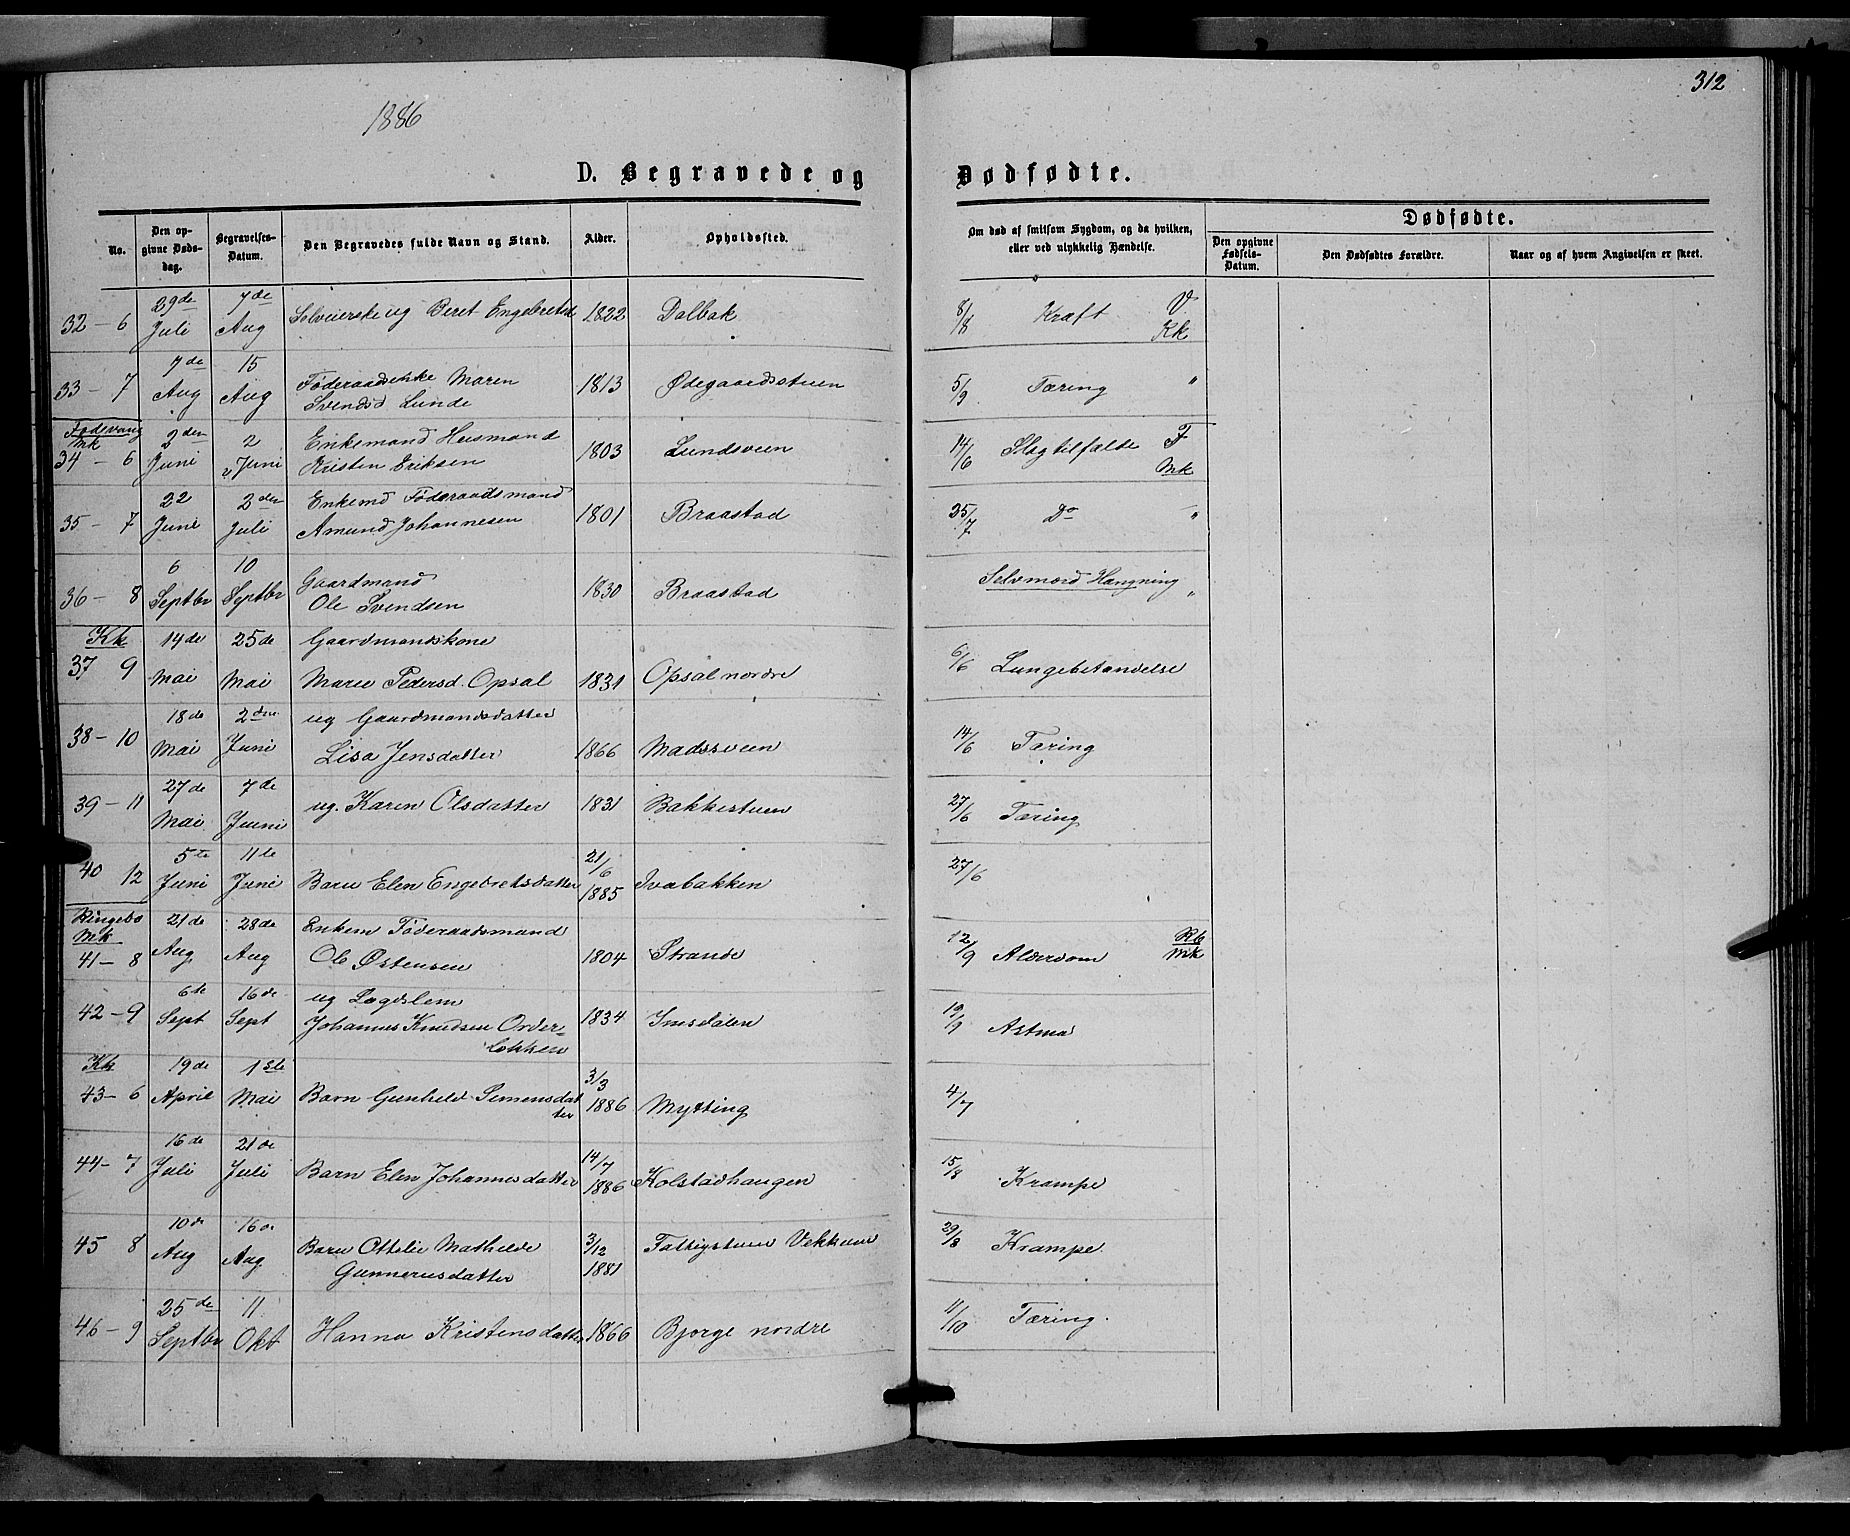 312
1886
D. Begravede og Dødfødte.
No.
Den opgivne Dødsdag.
Begravelses-Datum.
Den Begravedes fulde Navn og Stand.
Alder.
Opholdssted.
Om død af smitsom Sygdom, og da hvilken, eller ved ulykkelig Hændelse.
Dødfødte.
Den opgivne Fødsels-Datum.
Den Dødfødtes Forældre.
Naar og af hvem Angivelsen er skeet.
32 - 6 29de Juli 7de Aug Selveierske ug Beret Engebretsd 1822 Dalbak 8/8 Kræft V Kk
33 - 7 7de Aug 15 Aug Føderaadsenke Maren
Svendsd Lunde 1813 Ødegaardsstuen 5/9 Tæring "
Fodevang
Mk
34 - 6 2den Juni 2 Juni Enkemand Husmand
Kristen Eriksen 1803 Lundsveen 14/6 Slagtilfælde F Mk
35 - 7 22 Juni 2den Juli Enkemd Føderaadsmand
Amund Johannesen 1801 Braastad 25/7 Do "
36 - 8 6 Septbr 10 Septbr Gaardmand
Ole Svendsen 1830 Braastad Selvmord Hængning "
Kk
37 9 14de Mai 25de Mai Gaardmandskone
Marie Pedersd. Opsal 1831 Opsal nordre 6/6 Lungebetændelse
38 - 10 18de Mai 2den Juni ug Gaardmandsdatter
Lisa Jensdatter 1866 Madssveen 14/6 Tæring
39 - 11 27de Mai 7de Juni ug. Karen Olsdatter 1831 Bakkestuen 27/6 Tæring
40 12 5te Juni 11te Juni Barn Elen Engebretsdatter 21/6 1885 Ivabakken 27/6
Ringebo
Mk
41 - 8 21de Aug. 28de Aug Enkem Føderaadsmand
Ole Østensen 1804 Strande 12/9 Alderdom Rb Mk
42 - 9 6te Sept 16de Sept ug Lægdslem
Johannes Knudsen Order-
løkken 1834 Imsdalen 19/9 Astma
Kk
43 - 6 19de April 1ste Mai Barn Gunhild Simensdat
ter 3/3 1886 Mytting 4/7
44 - 7 16de Juli 21de Juli Barn Elen Johannesdatter 14/7 1886 Kolstadhaugen 15/8 Krampe
45 8 10de Aug 16de Aug Barn Ottilie Mathilde
Gunnerusdatter 3/12 1881 Fattigstuen Vekkum 29/8 Krampe.
46 - 9 25de Septbr 11 Okt Hanna Kristensdatter 1866 Bjørge nordre 11/10 Tæring.